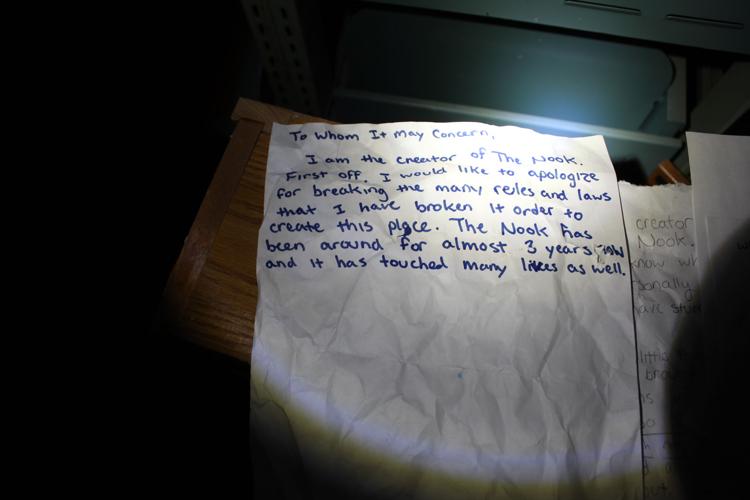 To Whom It May Concern,
I am the creator of The Nook.
First off, I would like to apologize
for breaking the many rules and laws
that I have broken it order to
create this place. The Nook has
been around for almost 3 years now
and it has touched many lives as well.
creator
Nook.
know
onally
little